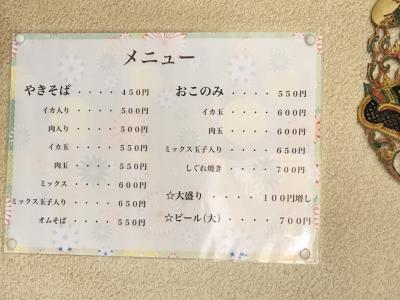 メニュー
やきそば ・・・・ 450円
イカ入り ・・・・ 500円
肉入り ・・・・ 500円
イカ玉 ・・・・ 550円
肉玉 ・・・・ 550円
ミックス ・・・・ 600円
ミックス玉子入り ・・・・ 650円
オムそば ・・・・ 550円
おこのみ ・・・・ 550円
イカ玉 ・・・・ 600円
肉玉 ・・・・ 600円
ミックス玉子入り ・・・・ 650円
しぐれ焼き ・・・・ 700円
☆大盛り ・・・・ 100円増し
☆ビール(大) ・・・・ 700円